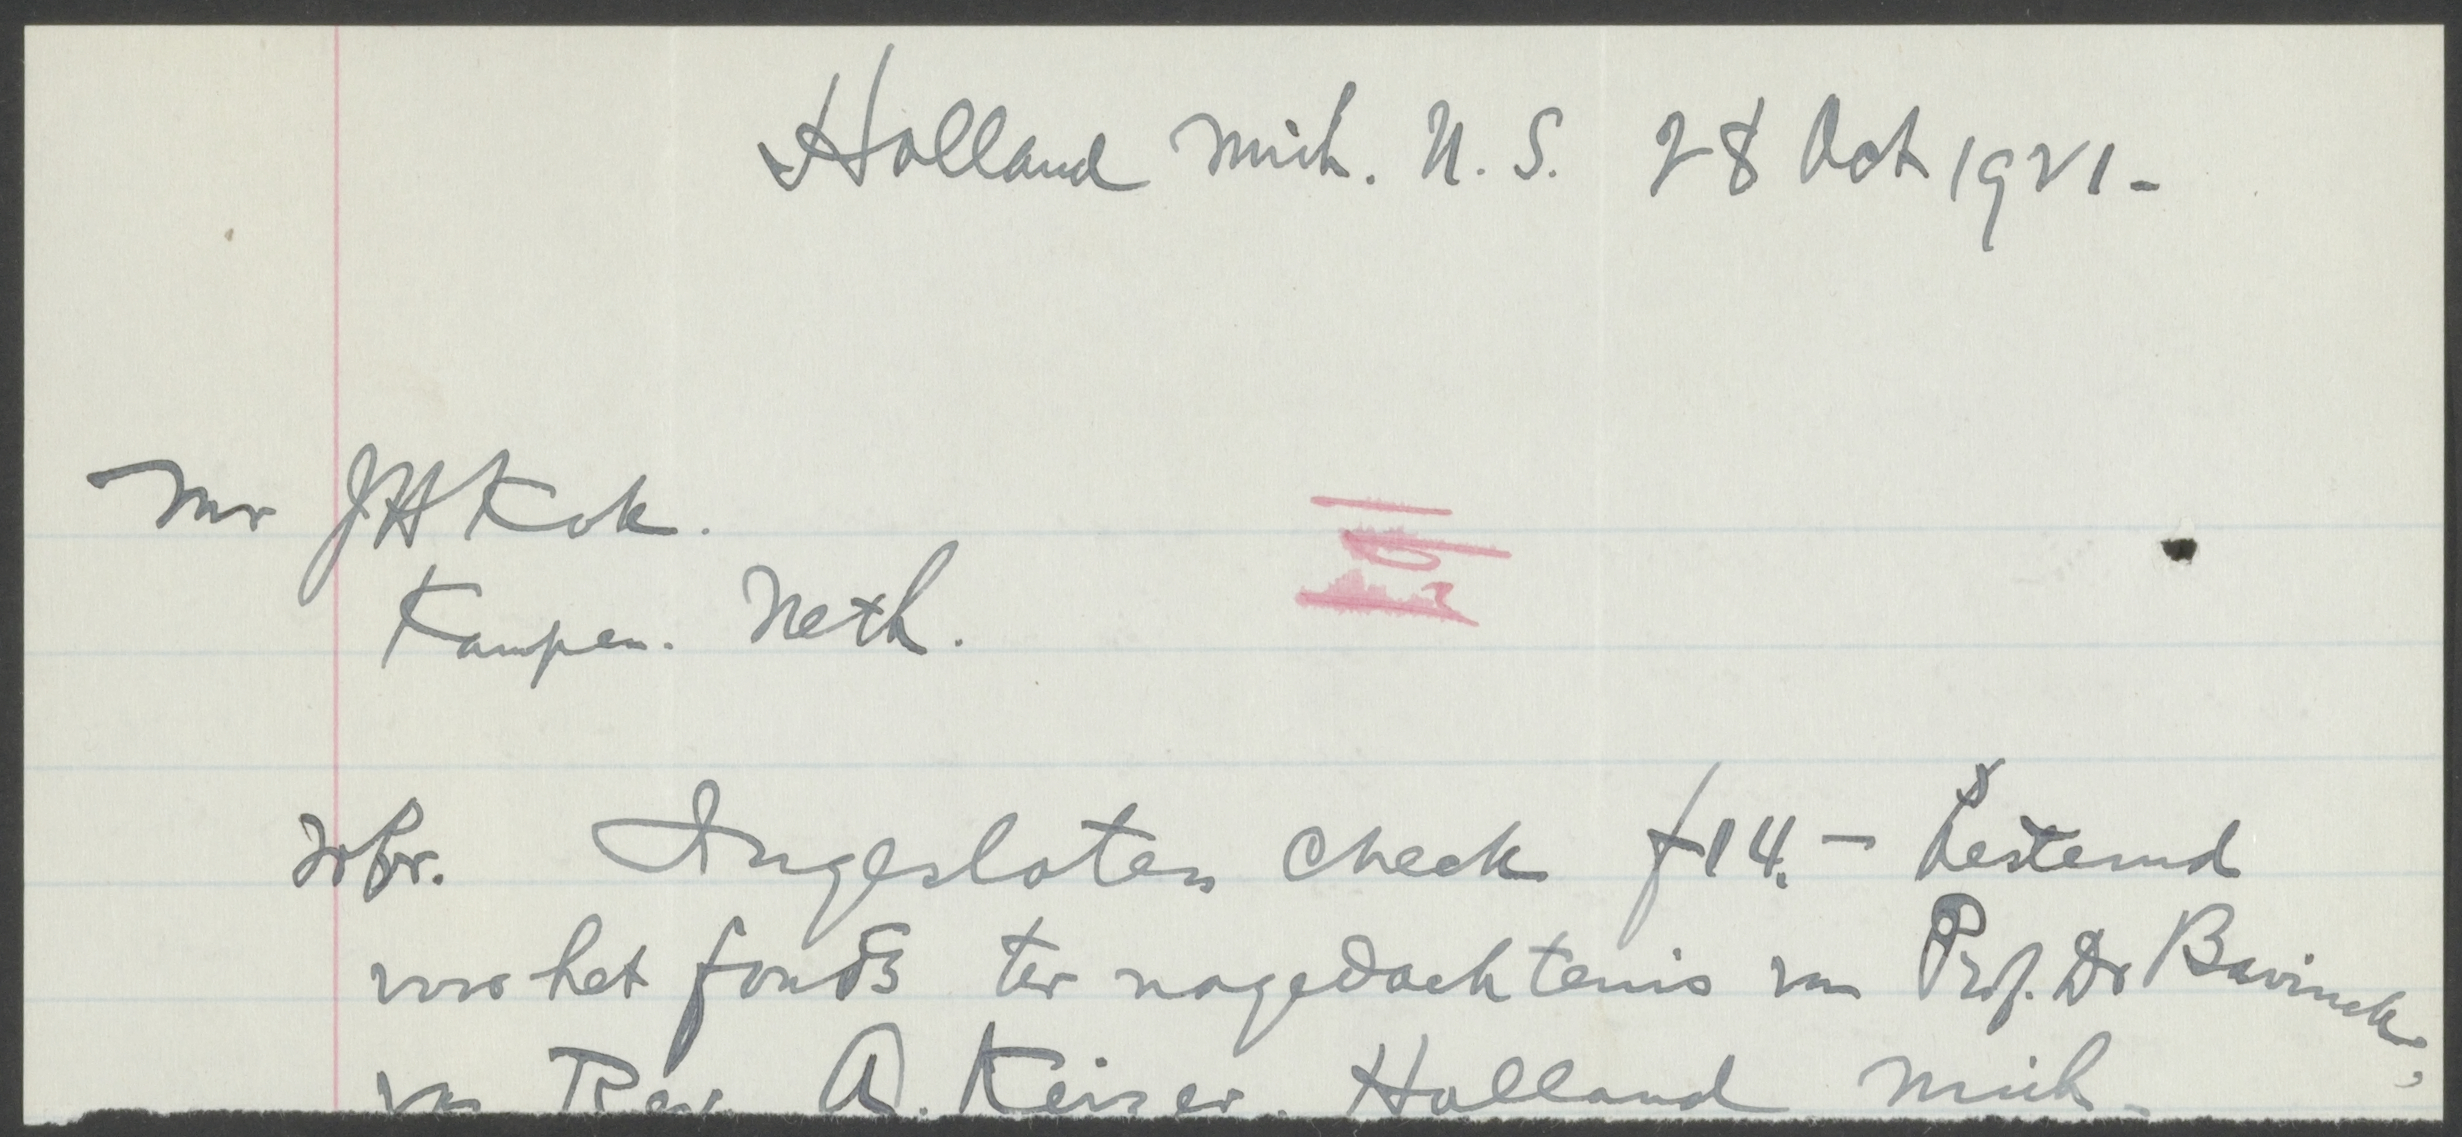 Holland Mich. U. S. 28 Oct 1921-
Mr J H Kok.
Kampen. Neth.
Ingesloten check f 14.- bestemd
voor het fonds ter nagedachtenis van Prof. Dr Bavinck,
van Rev A. Keizer. Holland Mich.